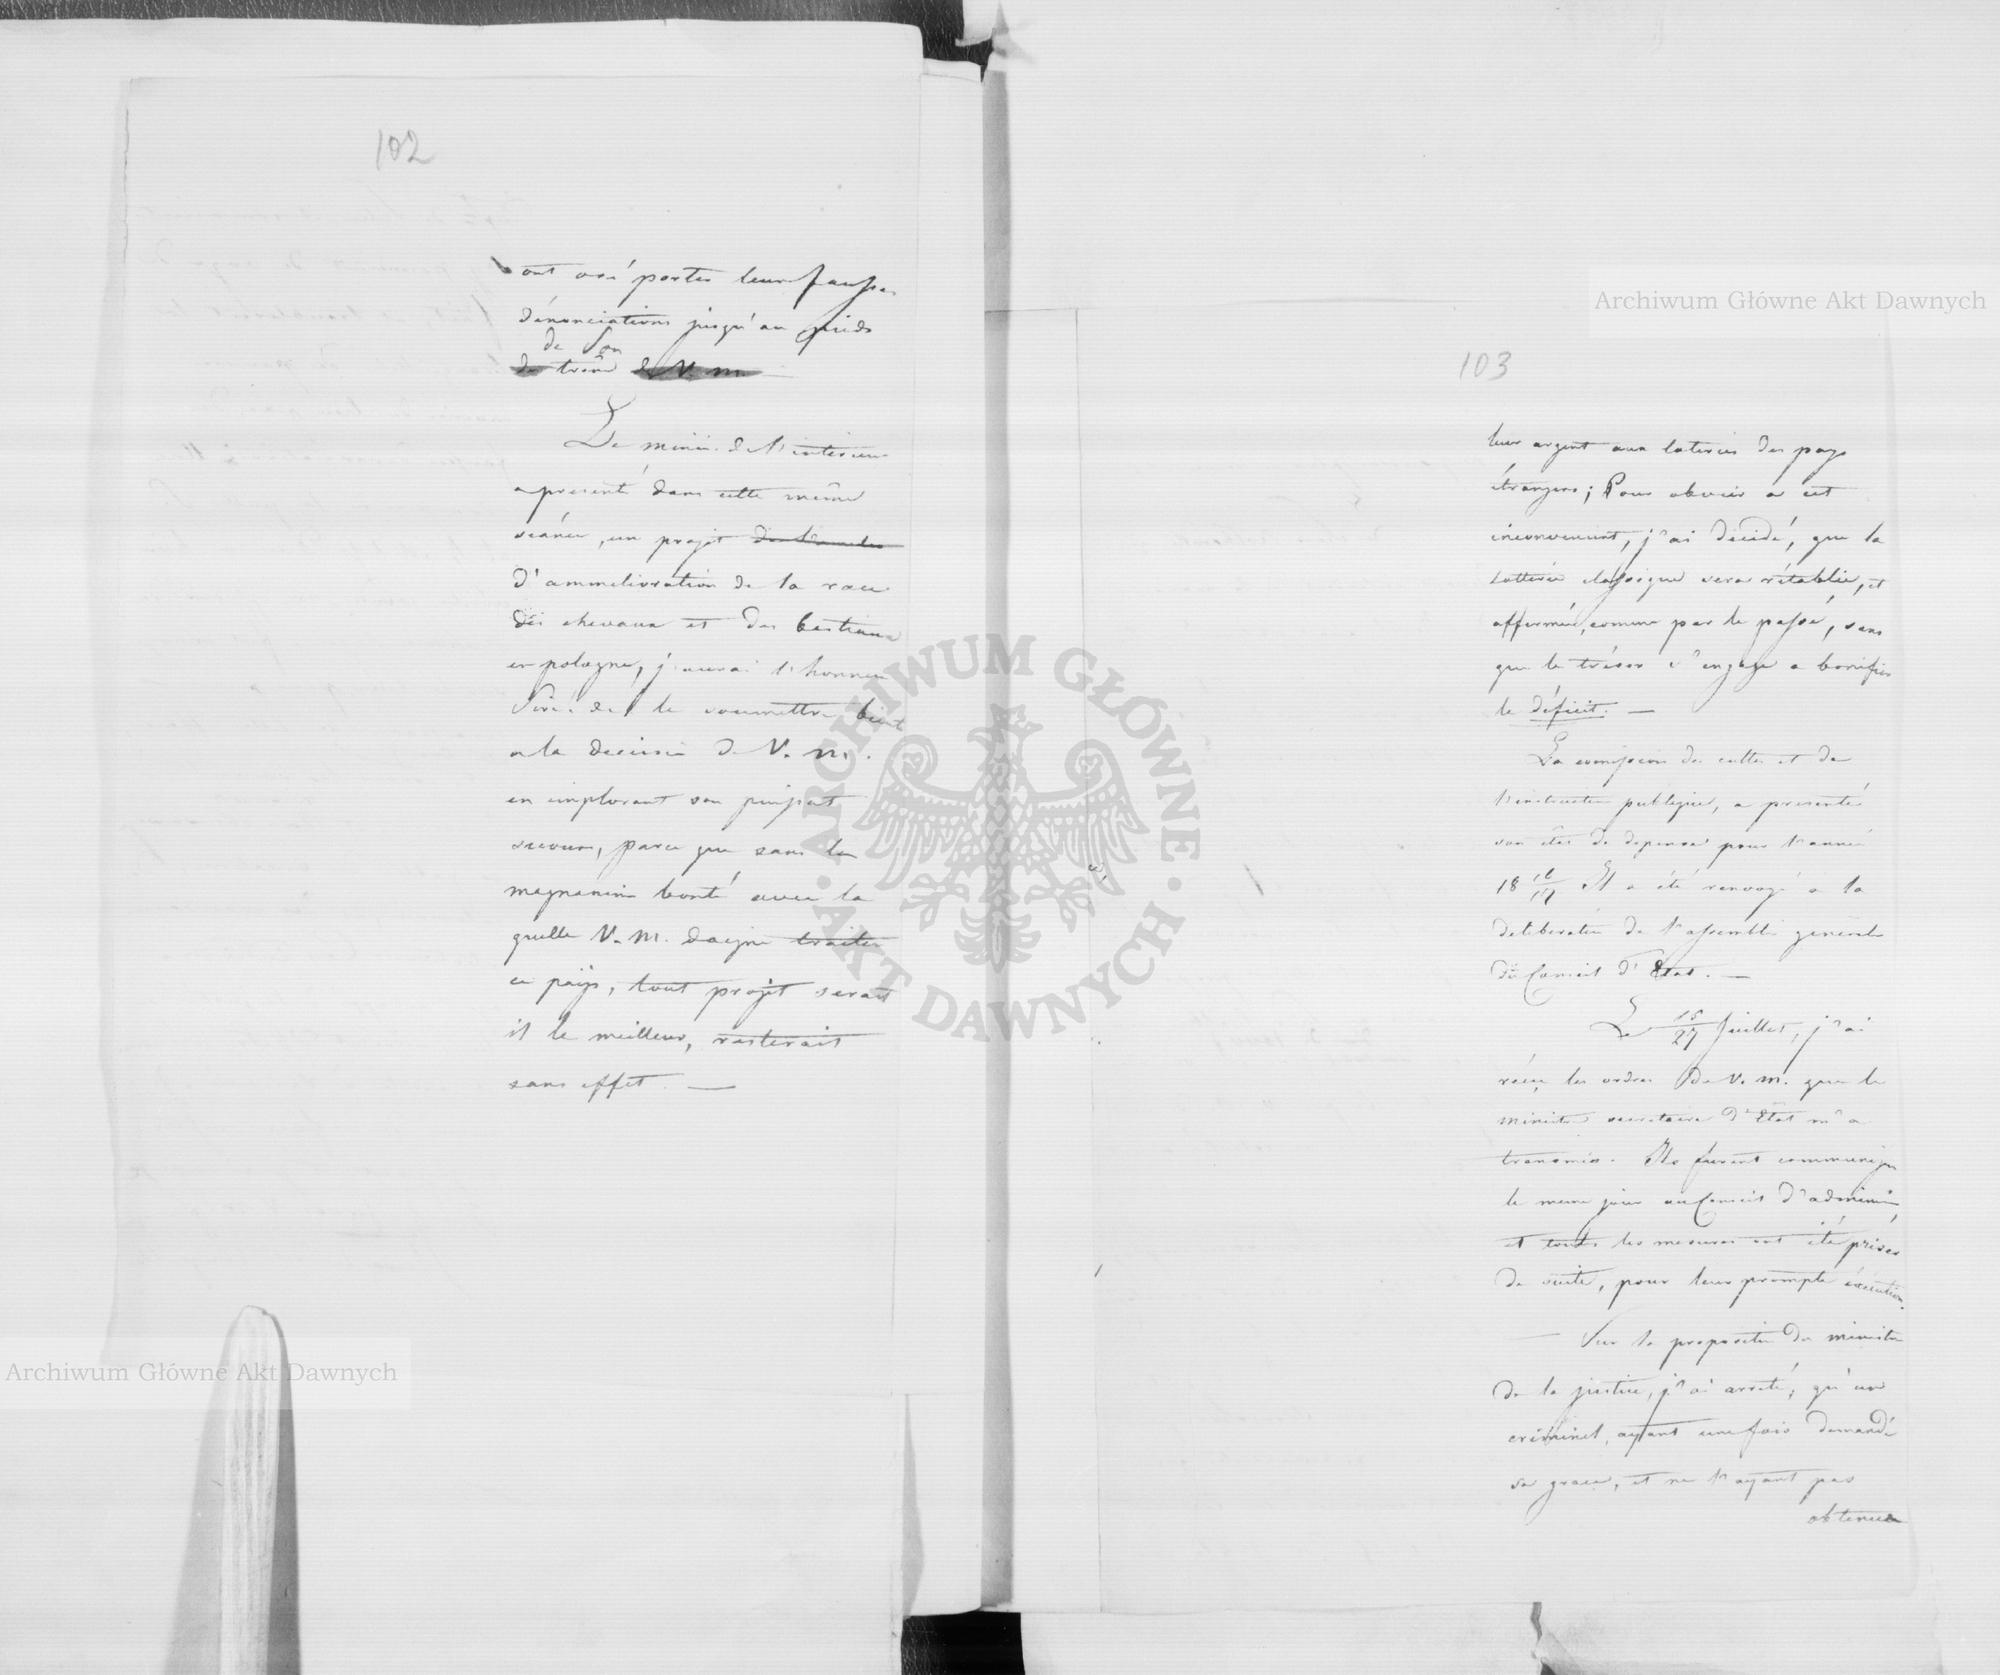 102
ont osé porter leurs fausses
dénonciations jusqu'au pieds
de Son
du trône de V. M. —
Le minis. de l'interieur
a presenté dans cette même
séance, un projet
d'ammelioration de la race
des chevaux et des bestiaux
en pologne, j'aurai l'honneur
Sire de le soumettre
a la decision de V. M.
en implorant son puissant
secours, parce que sans la
magnanime bonté avec la
quelle V. M. daigne traiter
ce païs, tout projet serait
il le meilleur, resterait
sans effet. —
103
leur argent aux loteries des pays
étrangers; Pour obvier a cet
inconvenient, j'ai décidé, que la
Lotterie classique sera rétablie, et
affermée, comme par le passé, sans
que le trésor s'engage a bonifier
le déficit. —
La comission des cultes et de
l'instruction publique, a presenté
son état de depense pour l'année
18 16/17 Il a été renvoyé a la
deliberation de l'assemblée generale
du Conseil d'Etat. —
Le 15/27 Juillet, j'ai
réçu les ordres de V. M. que le
ministre secretaire d'Etat m'a
transmis. Ils furent communiqués
le meme jour au Conseil d'admini
et toutes les mesures ont été prises
de suite, pour leur prompte éxécution.
— Sur la proposition du ministre
de la justice, j'ai arreté, qu'un
criminel, ayant une fois demandé
sa grace, et ne l'ayant pas
obtenue
Archiwum Główne Akt Dawnych
Archiwum Główne Akt Dawnych
ARCHIWUM GŁÓWNE
AKT DAWNYCH